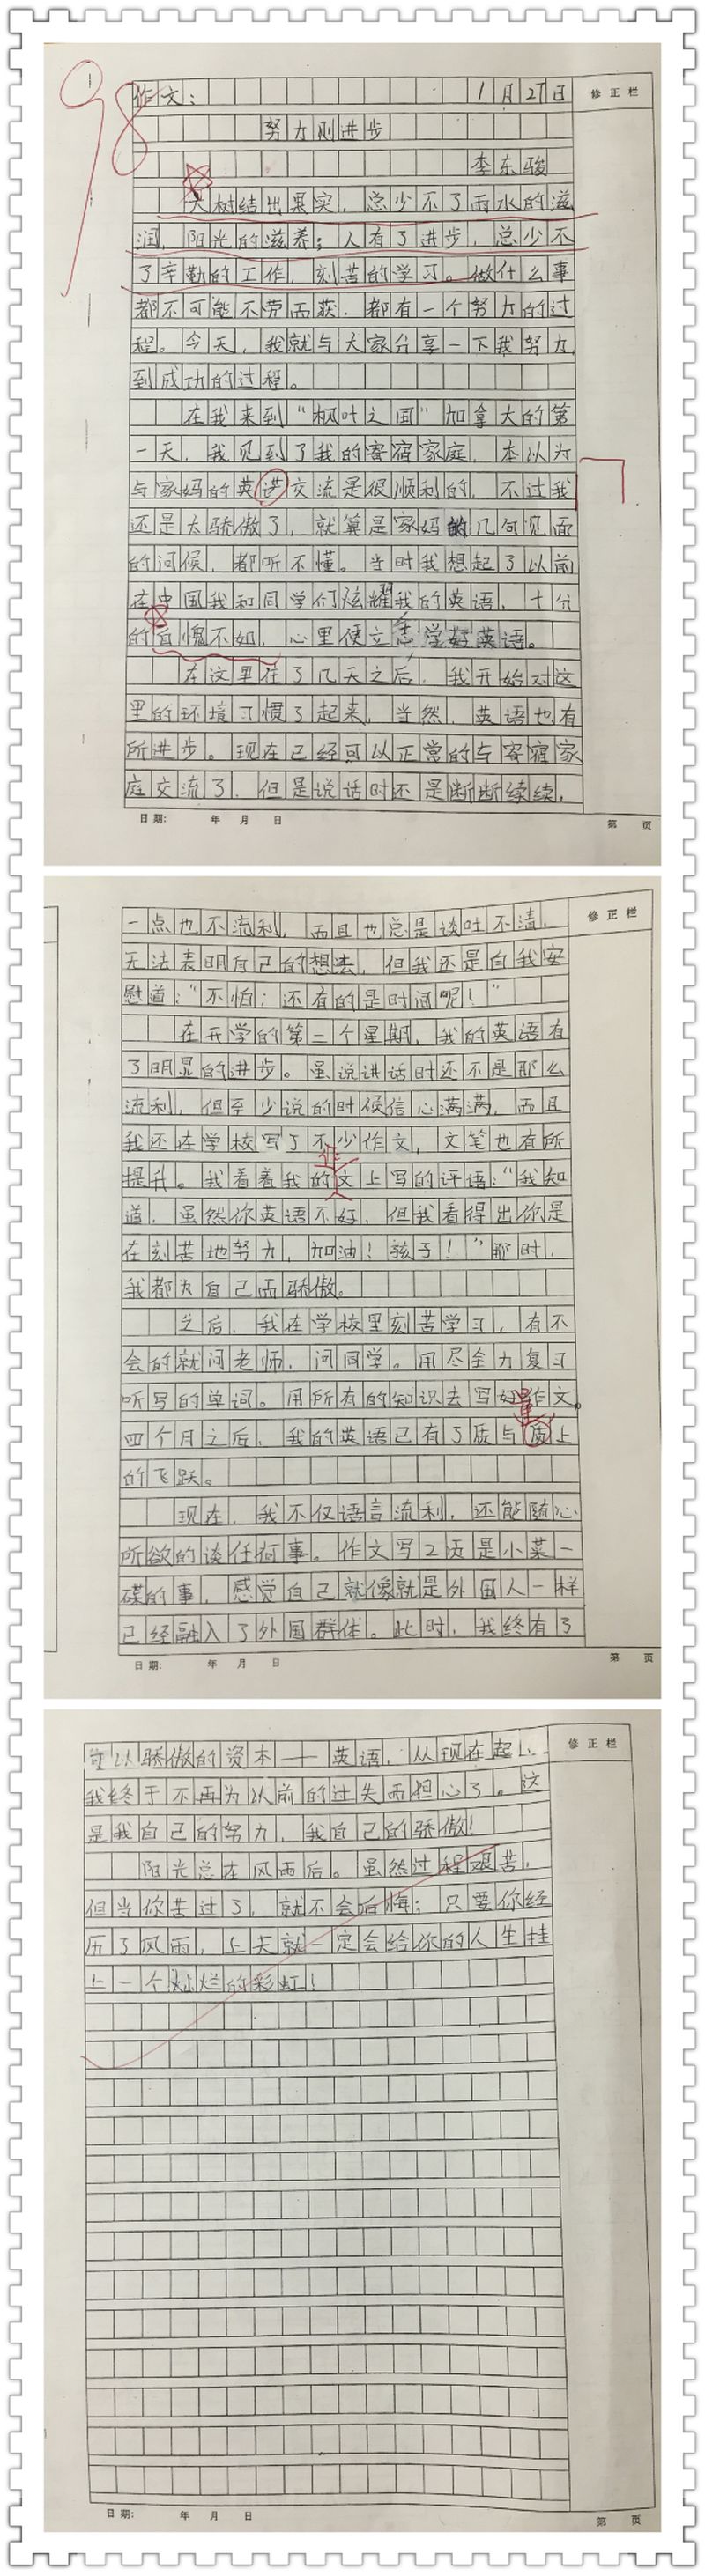 98
作文: 1月27日 修正栏
努力则进步
李东骏
大树结出果实，总少不了雨水的滋
润，阳光的滋养；人有了进步，总少不
了辛勤的工作，刻苦的学习。做什么事
都不可能不劳而获，都有一个努力的过
程。今天，我就与大家分享一下我努力
到成功的过程。
在我来到“枫叶之国”加拿大的第
一天，我见到了我的寄宿家庭，本以为
与家妈的英语交流是很顺利的，不过我
还是太骄傲了，就算是家妈的几句见面
的问候，都听不懂。当时我想起了以前
在中国我和同学们炫耀我的英语，十分
的自愧不如，心里便立志学好英语。
在这里住了几天之后，我开始对这
里的环境习惯了起来，当然，英语也有
所进步。现在已经可以正常的与寄宿家
庭交流了，但是说话时还是断断续续，
日期: 年 月 日 第 页
一点也不流利，而且也总是谈吐不清， 修正栏
无法表明自己的想法，但我还是自我安
慰道：“不怕；还有的是时间呢！”
在开学的第二个星期，我的英语有
了明显的进步。虽说讲话时还不是那么
流利，但至少说的时候信心满满，而且
我还在学校写了不少作文，文笔也有所
作
提升。我看着我的文上写的评语：“我知
道，虽然你英语不好，但我看得出你是
在刻苦地努力，加油！孩子！”那时，
我都为自己而骄傲。
之后，我在学校里刻苦学习，有不
会的就问老师，问同学。用尽全力复习
听写的单词。用所有的知识去写好作文。
量
四个月之后，我的英语已有了质与质上
的飞跃。
现在，我不仅语言流利，还能随心
所欲的谈任何事。作文写2页是小菜一
碟的事，感觉自己就像就是外国人一样
已经融入了外国群体。此时，我终有了
日期: 年 月 日 第 页
可以骄傲的资本——英语，从现在起， 修正栏
我终于不再为以前的过失而担心了。这
是我自己的努力，我自己的骄傲！
阳光总在风雨后。虽然过程艰苦，
但当你苦过了，就不会后悔；只要你经
历了风雨，上天就一定会给你的人生挂
上一个灿烂的彩虹！
日期: 年 月 日 第 页